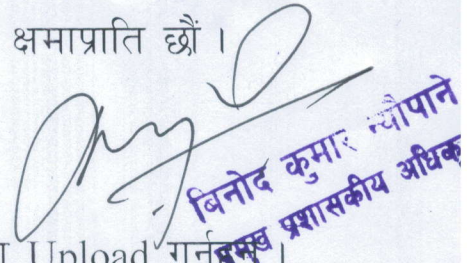 क्षमाप्राति छौं ।
बिनोद कुमार न्यौपाने
प्रमुख प्रशासकीय अधिकृ
Upload गर्नुहुन ।